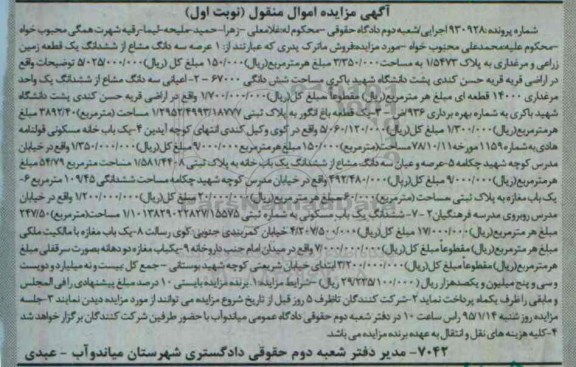 آگهی مزایده اموال منقول (نوبت اول)
شماره پرونده:۹۳۰۹۲۸ اجرایی/شعبه دوم دادگاه حقوقی –محکوم له:غلامعلی –زهرا–حمید–ملیحه–لیما–رقیه شهرت همگی محبوب خواه
–محکوم علیه:محمدعلی محبوب خواه –مورد مزایده:فروش ماترک پدری که عبارتند از: ۱ عرصه سه دانگ مشاع از ششدانگ یک قطعه زمین
زراعی و مرغداری به پلاک ۱/۵۴۷۳ به مساحت ۳/۳۵۰/۰۰۰ مبلغ هر مترمربع(ریال)۱۵۰/۰۰۰ مبلغ کل (ریال)۵/۰۲۵/۰۰۰/۰۰۰ توضیحات واقع
در اراضی قریه قریه حسن کندی پشت دانشگاه شهید باکری مساحت شش دانگی ۶۷۰۰۰ –۲–اعیانی سه دانگ مشاع از ششدانگ یک واحد
مرغداری ۱۴۰۰۰ قطعه ای مبلغ هر مترمربع(ریال) مقطوعاً مبلغ کل(ریال)۱/۷۰۰/۰۰۰/۰۰۰ واقع در اراضی قریه حسن کندی پشت دانشگاه
شهید باکری به شماره بهره برداری ۹۳۶ش–۳–یک قطعه باغ انگور به پلاک ثبتی ۱/۲۹۵۳/۴۹۹۳/۱۸۷۷۷ مساحت (مترمربع) ۳۸۹۲/۴۰ مبلغ
هرمترمربع(ریال)۱/۳۰۰/۰۰۰ مبلغ کل(ریال)۵/۰۶۰/۱۲۰/۰۰۰ واقع در کوی وکیل کندی انتهای کوچه آیدین ۴–یک باب خانه مسکونی قولنامه
هادی به شماره ۱۱۵۹ مورخه ۷۸/۱۰/۱۱ مساحت(مترمربع) ۱۵۰/۰۰۰ مبلغ هرمترمربع ۹/۰۰۰/۰۰۰ مبلغ کل(ریال)۱/۳۵۰/۰۰۰/۰۰۰ واقع در خیابان
مدرس کوچه شهید چکامه ۵–عرصه و عیان سه دانگ مشاع از ششدانگ یک باب خانه به پلاک ثبتی ۱/۵۸۱/۴۴۰۸ مساحت مترمربع ۵۴/۷۹ مبلغ
هرمترمربع(ریال)۹/۰۰۰/۰۰۰ مبلغ کل(ریال) ۴۹۲/۴۸۰/۰۰۰ واقع در خیابان مدرس کوچه شهید چکامه مساحت ششدانگی ۱۰۹/۴۵ مترمربع ۶–
یک باب مغازه به پلاک ثبتی مساحت (مترمربع) مبلغ هر مترمربع(ریال) مبلغ کل(ریال)۱/۲۰۰/۰۰۰/۰۰۰ واقع در خیابان
مدرس روبروی مدرسه فرهنگیان ۲ –۷– ششدانگ یک باب مسکونی به شماره ثبتی مساحت(مترمربع) ۲۴۷/۵۰
مبلغ هر مترمربع(ریال) ۱۷/۰۰۰/۰۰۰ مبلغ کل(ریال)۴/۲۰۷/۵۰۰/۰۰۰ خیابان کمربندی جنوبی کوی رسالت ۸–یک باب مغازه با مالکیت ملکی
مبلغ هر مترمربع(ریال) مقطوعاً مبلغ کل(ریال)۷/۰۰۰/۰۰۰/۰۰۰ واقع در میدان امام جنب داروخانه ۹–یک باب مغازه دو دهانه بصورت سرقفلی مبلغ
هر مترمربع(ریال)مقطوعاً مبلغ کل(ریال)۳/۲۰۰/۰۰۰/۰۰۰ ابتدای خیابان شریعتی کوچه شهید بوستانی –جمع کل بیست و نه میلیارد و دویست
و سی و پنج میلیون و یکصد هزار ریال (۲۹/۲۳۵/۱۰۰/۰۰۰ ریال) –شرایط مزایده:۱– برنده مزایده بایستی ۱۰ درصد مبلغ پیشنهادی رافی المجلس
و مابقی را ظرف یکماه پرداخت نماید ۲–شرکت کنندگان تا ظرف ۵ روز قبل از تاریخ شروع مزایده می توانند از مورد مزایده دیدن نمایند ۳–جلسه
مزایده روز شنبه ۹۵/۱/۱۴ راس ساعت ۱۰ در دفتر شعبه دوم حقوقی دادگاه عمومی میاندوآب با حضور طرفین شرکت کنندگان برگزار خواهد شد
۴–کلیه هزینه های نقل و انتقال به عهده برنده مزایده می باشد.
۷۰۴۲– مدیر دفتر شعبه دوم حقوقی دادگستری شهرستان میاندوآب – عبدی